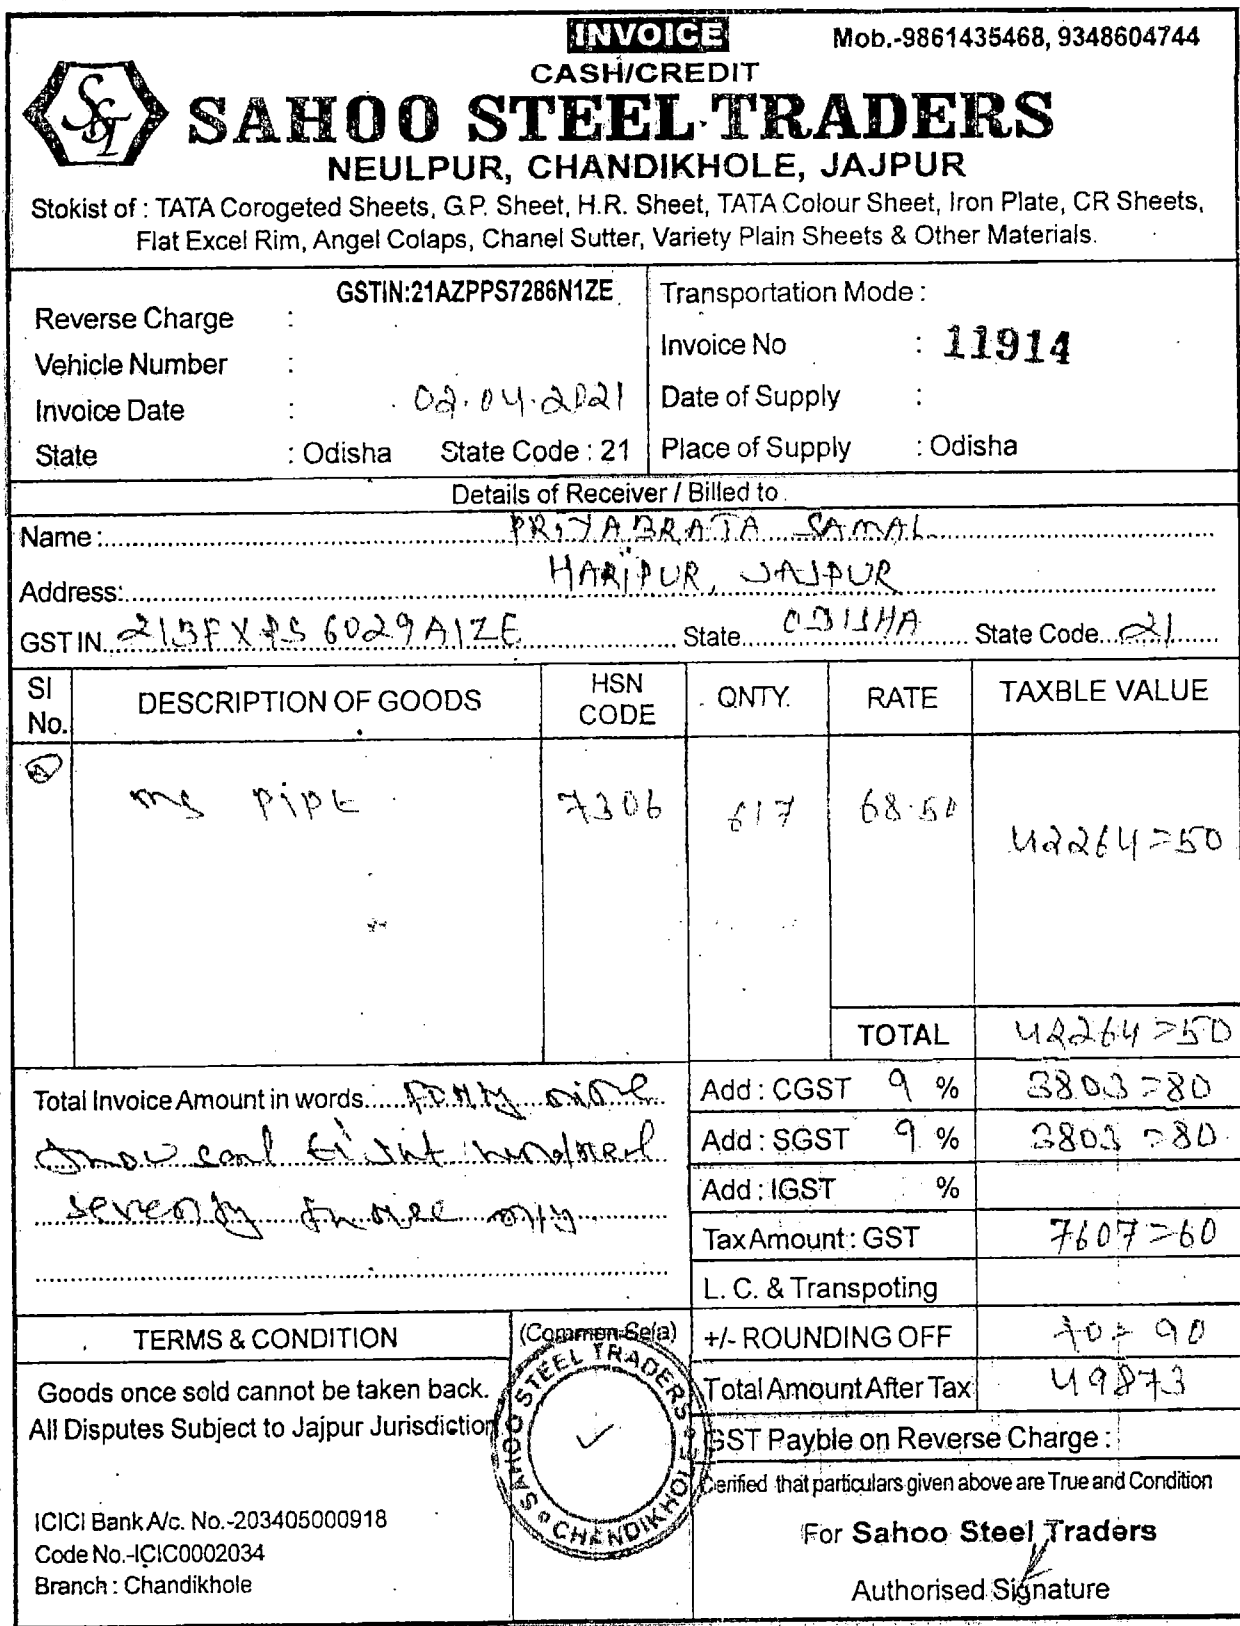 INVOICE
Mob.-9861435468, 9348604744
CASH/CREDIT
SST
SAHOO STEEL TRADERS
NEULPUR, CHANDIKHOLE, JAJPUR
Stokist of : TATA Corogeted Sheets, G.P. Sheet, H.R. Sheet, TATA Colour Sheet, Iron Plate, CR Sheets,
Flat Excel Rim, Angel Colaps, Chanel Sutter, Variety Plain Sheets & Other Materials.
GSTIN:21AZPPS7286N1ZE
Reverse Charge :
Vehicle Number :
Invoice Date : 02.04.2021
State : Odisha State Code : 21
Transportation Mode :
Invoice No : 11914
Date of Supply :
Place of Supply : Odisha
Details of Receiver / Billed to
Name : PRIYABRATA SAMAL
Address: HARIPUR, JAJPUR
GSTIN 21BFXPS6029A1ZE State ODISHA State Code 21
Sl No. DESCRIPTION OF GOODS HSN CODE QNTY. RATE TAXBLE VALUE
ms pipe 7306 617 68.50 42264=50
TOTAL 42264=50
Total Invoice Amount in words Forty nine
Add : CGST 9 % 3803=80
thousand Eight hundred
Add : SGST 9 % 3803=80
seventy three only
Add : IGST %
Tax Amount : GST 7607=60
L. C. & Transpoting
+/- ROUNDING OFF 90
Total Amount After Tax 49873
TERMS & CONDITION
Goods once sold cannot be taken back.
All Disputes Subject to Jajpur Jurisdiction
ICICI Bank A/c. No.-203405000918
Code No.-ICIC0002034
Branch : Chandikhole
(Common Sela)
SAHOO STEEL TRADERS
CHANDIKHOLE
GST Payble on Reverse Charge :
Cerified that particulars given above are True and Condition
For Sahoo Steel Traders
Authorised Signature